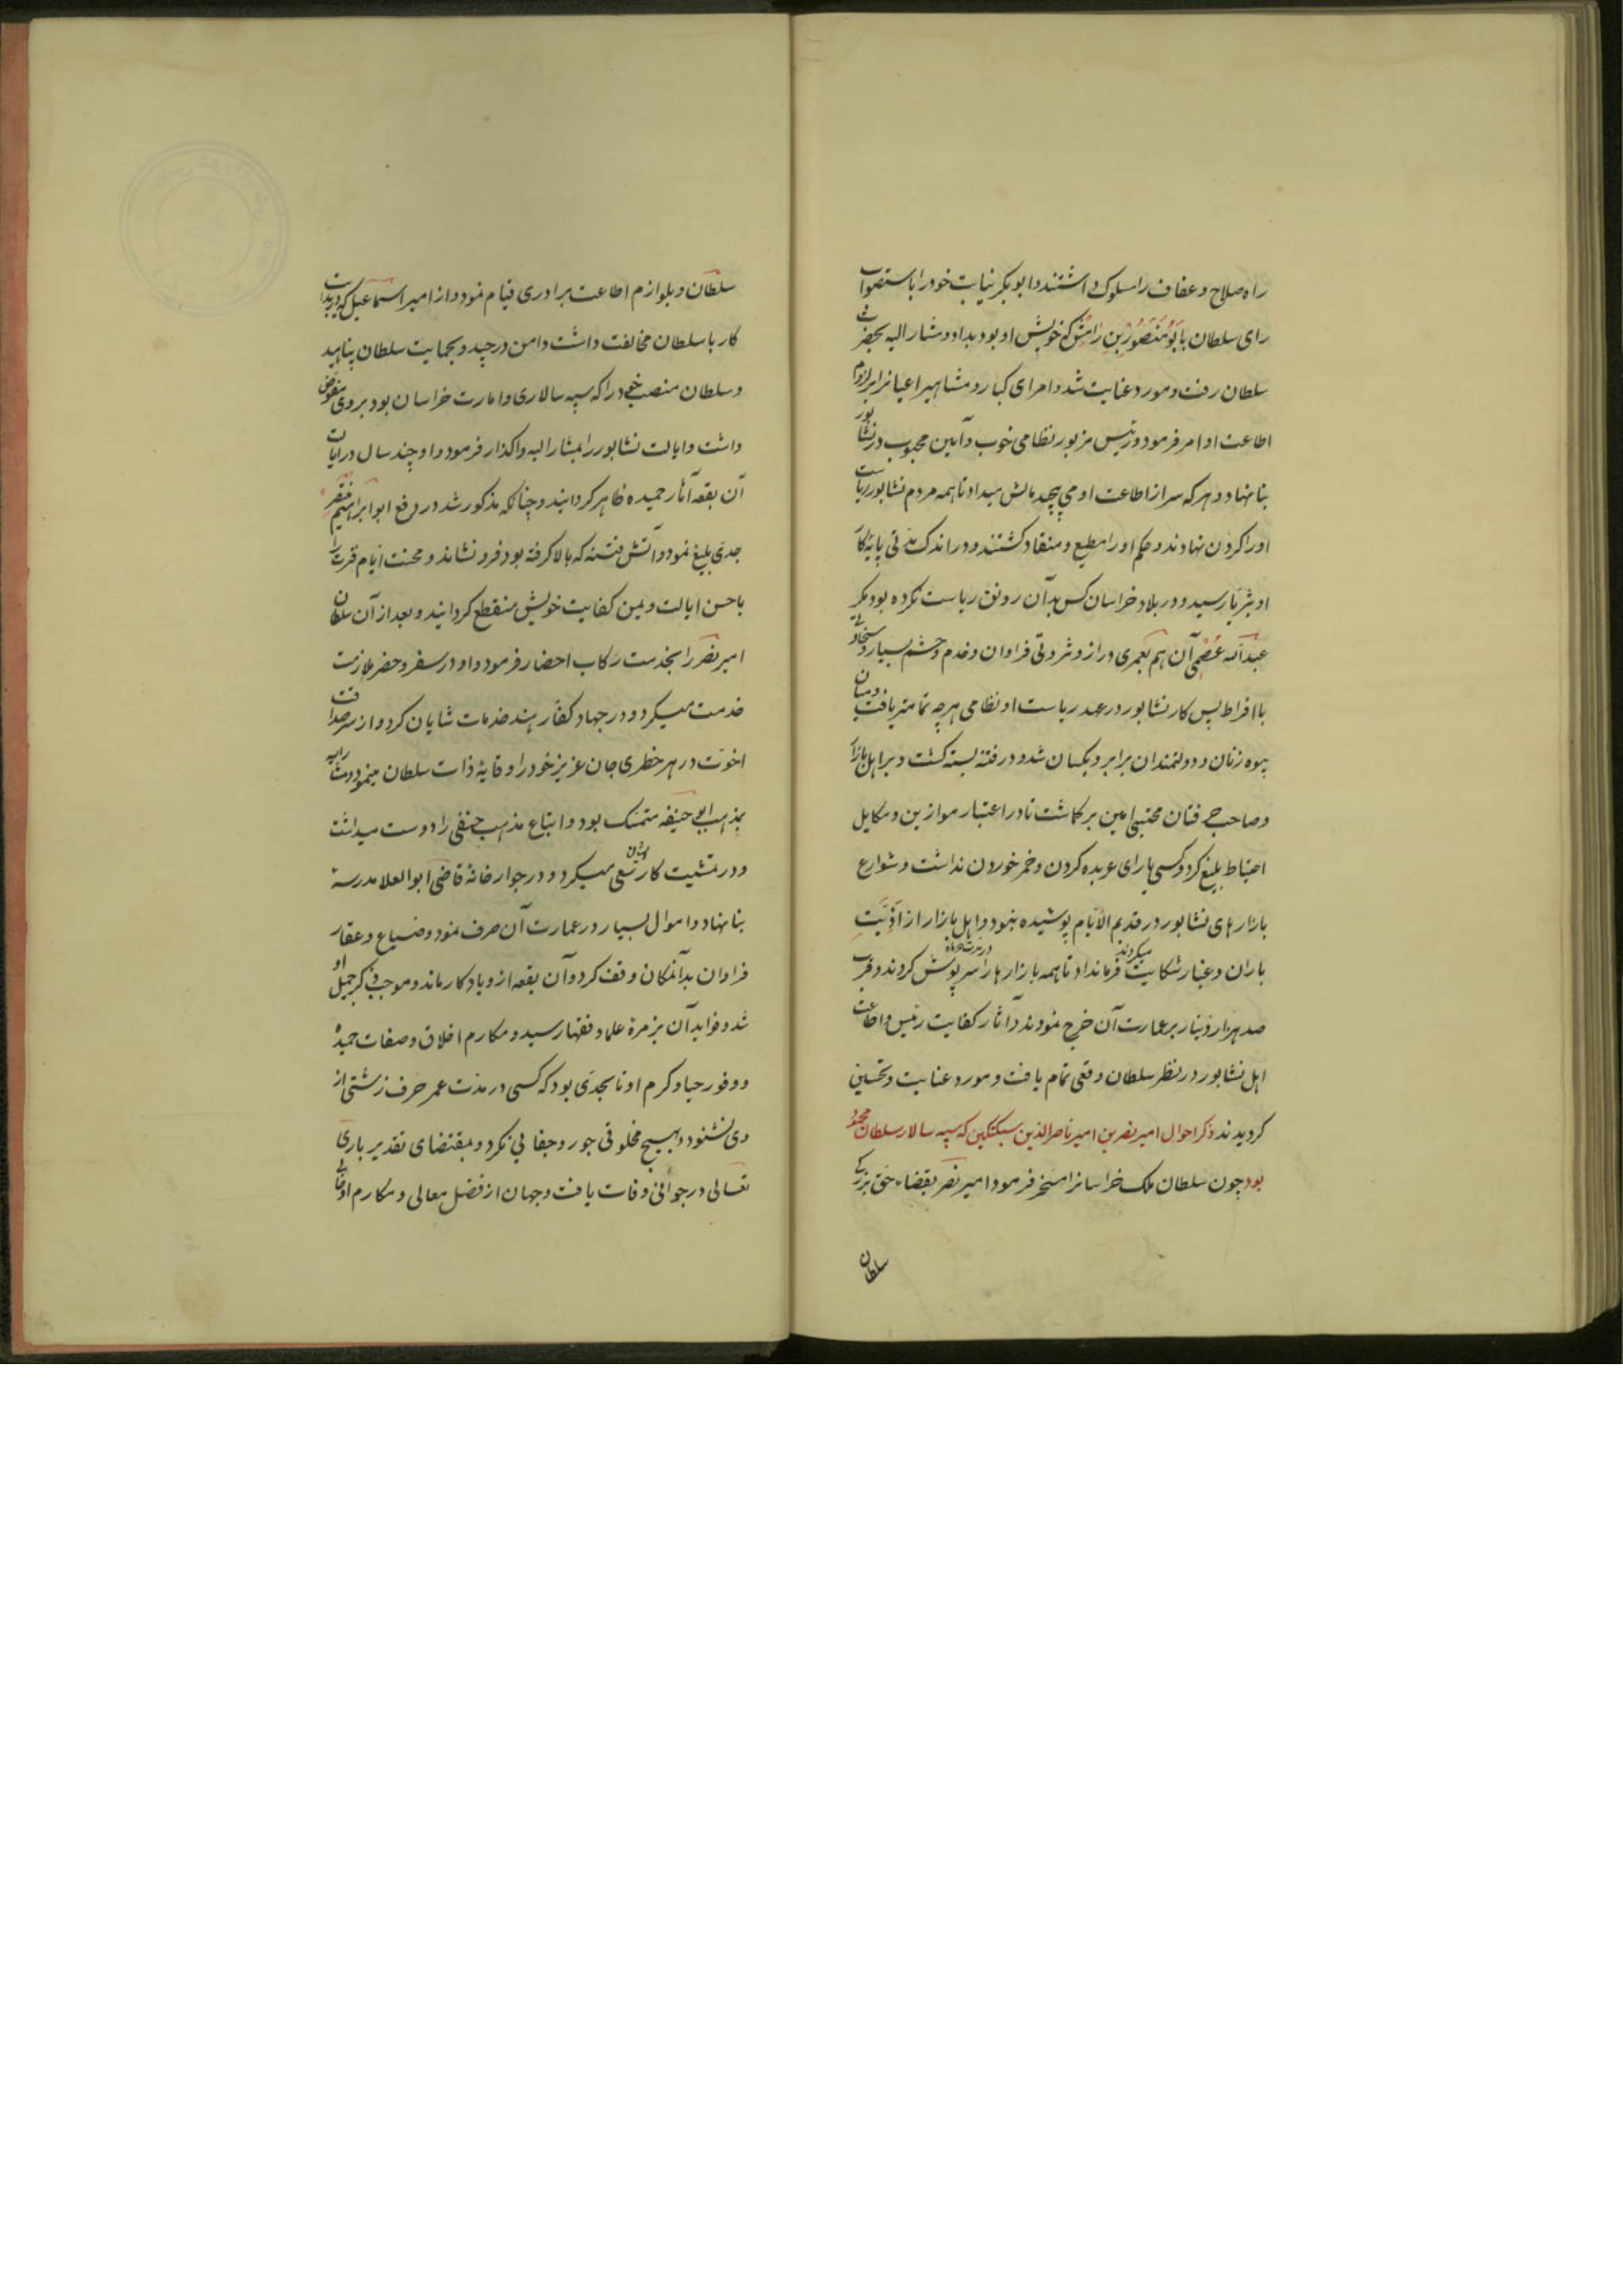 راه صلاح و عفاف را مسلوک داشتند و ابو بکر نیابت خود را باستصواب
رای سلطان بابو منصور بن رامش که خویش او بود بداد و مشار الیه بحضرت
سلطان رفت و مورد عنایت شد و امرای کبار و مشاهیر اعیانرا بلزوم
اطاعت او امر فرمود و رئیس مزبور نظامی خوب و آیین محبوب در نشابور
بنا نهاد و هر که سر از اطاعت او می پیچد مالش میداد تا همه مردم نشابور ریاست
او را کردن نهادند و حکم او را مطیع و منقاد کشتند و در اندک مدتی پایه کار
او بثریا رسید و در بلاد خراسان کس بدآن رونق ریاست نکرده بود مکر
عبدالله عصمی آن هم بعمری دراز و ثروتی فراوان و خدم و حشم بسیار و سخاوتی
با افراط پس کار نشابور در عهد ریاست او نظامی هر چه تمامتر یافت و میان
بیوه زنان و دولتمندان برابر و یکسان شد و در فتنه بسته کشت و بر اهل بازار
و صاحب فتان محتسبی امین بر کماشت تا در اعتبار موازین و مکاییل
احتیاط بلیغ کرد و کسی یارای عربده کردن و خمر خوردن نداشت و شوارع
بازارهای نشابور در قدیم الأیام پوشیده نبود و اهل بازار از اذیت
باران و غبار شکایت میکردند فرمانداد تا همه بازارها را سر پوش کردند و قرب
صد هزار دینار بر عمارت آن خرج نمودند و آثار کفایت رئیس و اطاعت
اهل نشابور در نظر سلطان وقعی تمام یافت و مورد عنایت و تحسین
کردیدند ذکر احوال امیر نصر بن امیر ناصر الدین سبکتکین که سپه سالار سلطان محمود
بود چون سلطان ملک خراسانرا مسخر فرمود امیر نصر بقضاء حق بزرکی
سلطان
سلطان و بلوازم اطاعت برادری قیام نمود و از امیر اسماعیل که در بدایت
کار با سلطان مخالفت داشت دامن در چید و بحمایت سلطان پناهید
و سلطان منصب خود را که سپه سالاری و امارت خراسان بود بر وی مفوض
داشت و ایالت نشابور را بمشار الیه واکذار فرمود و او چند سال در ایالت
آن بقعه آثار حمیده ظاهر کردانید و چنانکه مذکور شد در دفع ابو ابراهیم منتصر
جدی بلیغ نمود و آتش فتنه که بالا کرفته بود فرو نشاند و محنت ایام فترت را
با حسن ایالت و یمن کفایت خویش منقطع کردانید و بعد از آن سلطان
امیر نصر را بخدمت رکاب احضار فرمود و او در سفر و حضر ملازمت
خدمت میکرد و در جهاد کفار هند خدمات شایان کرد و از سر صداقت
اخوت در هر خطری جان عزیز خود را وقایه ذات سلطان مینمود و مشار الیه
بمذهب ابی حنیفه متمسک بود و اتباع مذهب حنفی را دوست میداشت
و در تمشیت کار ایشان سعی میکرد و در جوار خانه قاضی ابو العلا مدرسه
بنا نهاد و اموال بسیار در عمارت آن صرف نمود و ضیاع و عقار
فراوان بدآنمکان وقف کرد و آن بقعه از و یادکار ماند و موجب ذکر جمیل او
شد و فواید آن بزمره علما و فقها رسید و مکارم اخلاق و صفات حمیده
و وفور حیا و کرم او تا بحدی بود که کسی در مدت عمر حرف زشتی از
وی نشنود و بهیچ مخلوقی جور و جفایی نکرد و بمقتضای تقدیر باری
تعالی در جوانی وفات یافت و جهان از فضل معالی و مکارم او